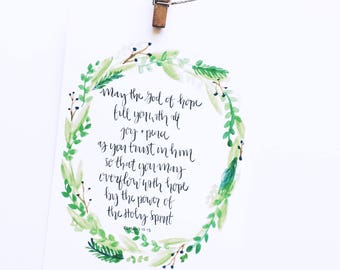 May the God of hope
fill you with all
joy + peace
as you trust in him
so that you may
overflow with hope
by the power of
the Holy Spirit